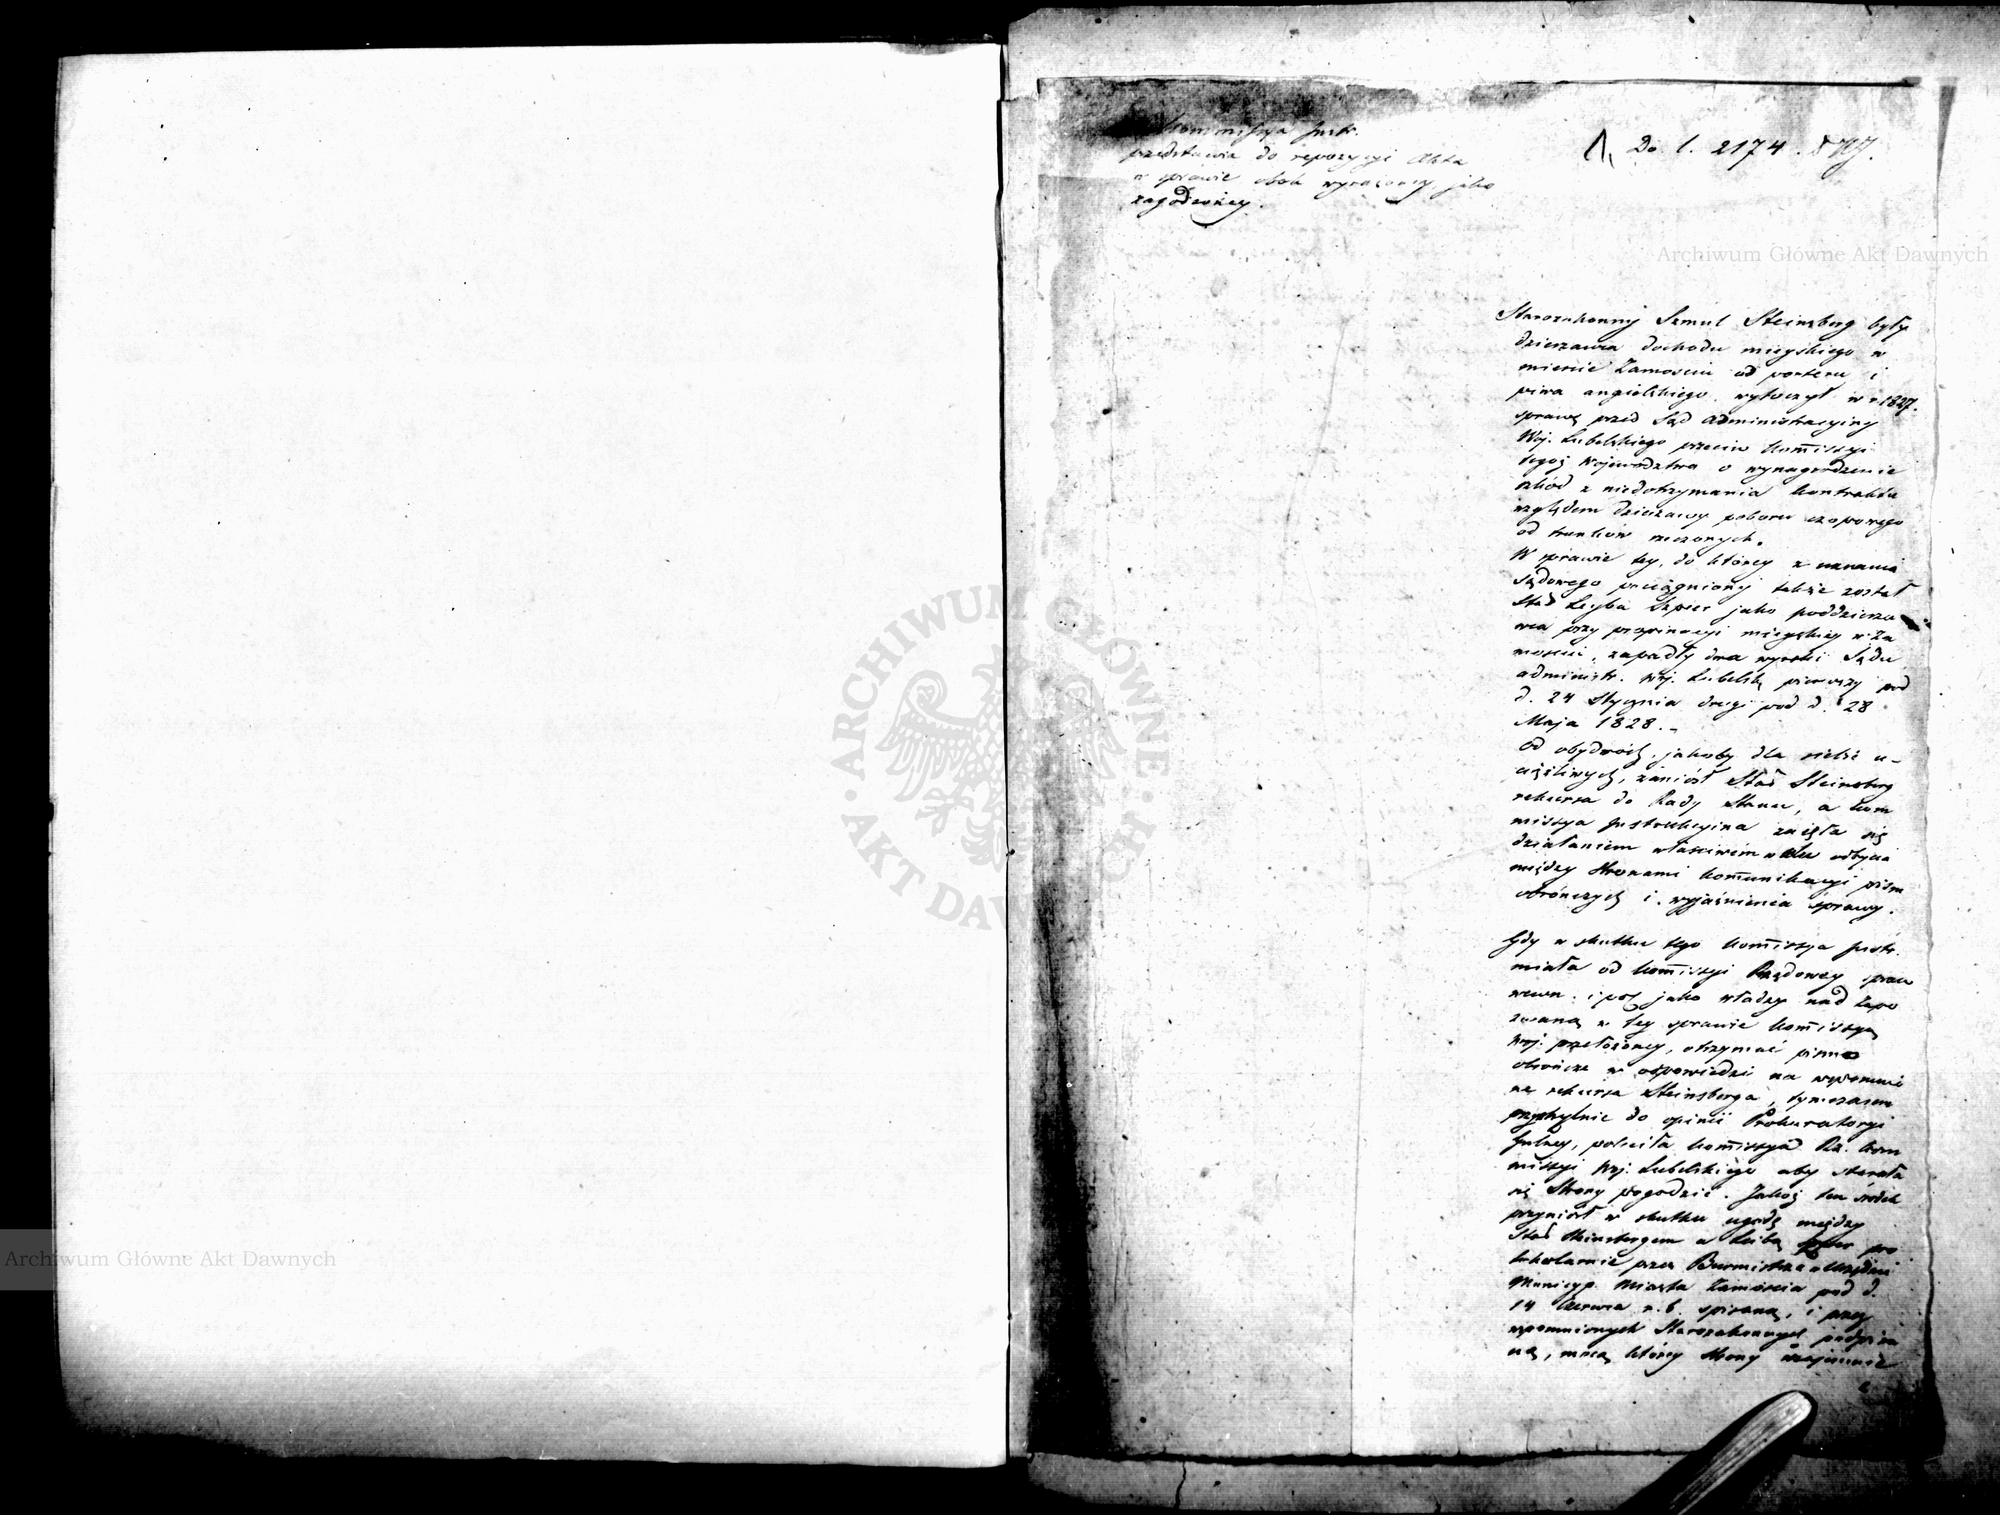 Kommissya Instr.
przedstawia do repozycyi Akta
w sprawie obok wyrażoney, jako
zagodzoney.
1, Do l. 2174.
Archiwum Główne Akt Dawnych
Starozakonny Szmul Steinsberg były
dzierzawca dochodu mieyskiego w
mieście Zamościu od porteru i
piwa angielskiego wytoczył w r. 1827.
sprawę przed Sąd Administracyiny
Woj. Lubelskiego przeciw Kom̄issyi
tegoż Województwa o wynagrodzenie
szkód z niedotrzymania kontraktu
względem dzierzawy poboru czopowego
od trunków rzeczonych.
W sprawie tey, do którey z uznania
sądowego pociągniony także został
Stad Leyba Szper jako poddzierza
wca przy propinacyi mieyskiey w Za
mościu, zapadły dwa wyroki Sądu
administr. Woj. Lubelsk. pierwszy pod
d. 24 Stycznia drugi pod d. 28
Maja 1828. -
Od obydwóch, jakoby dla siebie u-
ciążliwych, zaniósł Stad Steinsberg
rekursa do Rady Stanu, a Kom
missya Instrukcyina zaięła się
działaniem właściwém w celu odbycia
między Stronami kom̄unikacyi pism
obrończych i wyjaśnienia sprawy.
Gdy w skutku tego Kom̄issya Instr.
miała od Kom̄issyi Rządowey spraw
wewn. i pol. jako władzy nad zapo
zwaną w tey sprawie Kom̄issyą
Woj. przełożoney, otrzymać pismo
obrończe w odpowiedzi na wspomnio
ne rekursa Steinsberga, tymczasem
przychylnie do opinii Prokuratoryi
Jlney, poleciła Kom̄issya Rz. Kom
missyi Woj. Lubelskiego aby starała
się Strony pogodzić. Jakoż ten środek
przyniósł w skutku ugodę między
Stad Steinsbergem a Leibą Szper pro
tokolarnie przez Burmistrza
Municyp. Miasta Zamościa pod d.
14 Czerwca r. b. spisaną, i przez
wspomnionych Starozakonnych podpisa
ną, mocą którey Strony wzajemnie
ARCHIWUM GŁÓWNE AKT DAWNYCH
Archiwum Główne Akt Dawnych